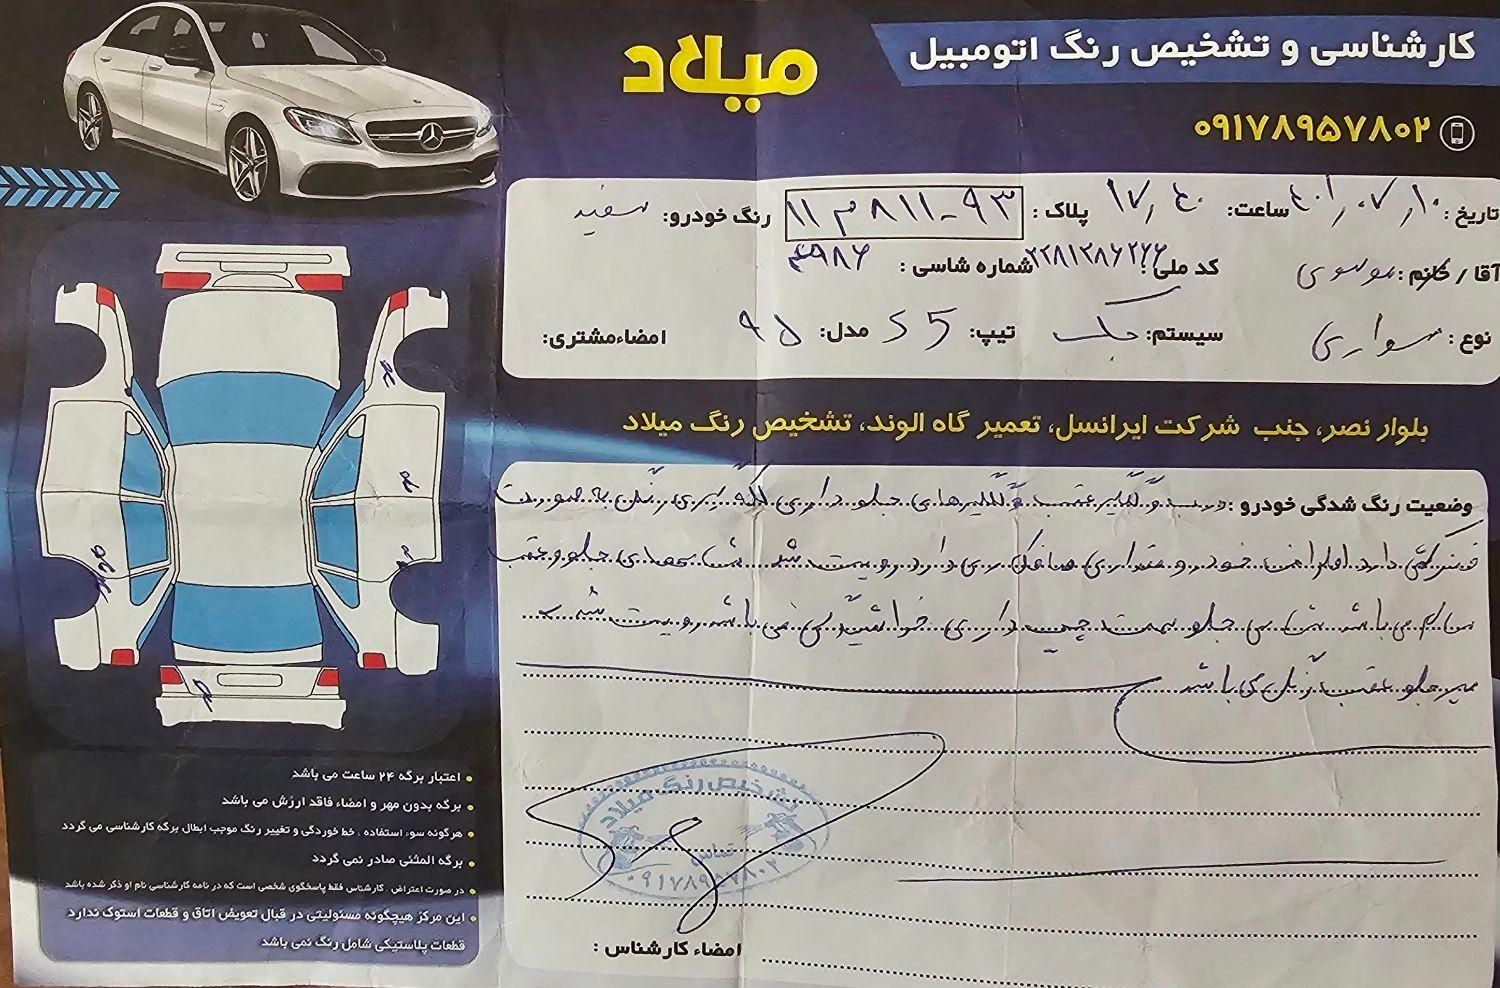 کارشناسی و تشخیص رنگ اتومبیل
میلاد
۰۹۱۷۸۹۵۷۸۰۲
تاریخ : ۴۰۱٫۰۷٫۱۰ ساعت: ۱۷٫۴۰ پلاک : ۱۱ م ۸۱۱-۹۳ رنگ خودرو: سفید
آقا / خانم : موسوی کد ملی : شماره شاسی :
نوع : سواری سیستم: جک تیپ: S5 مدل: ۹۵ امضاءمشتری:
بلوار نصر، جنب شرکت ایرانسل، تعمیر گاه الوند، تشخیص رنگ میلاد
وضعیت رنگ شدگی خودرو : درب و گلگیر عقب و گلگیرهای جلو دارای لکه گیری رنگ به صورت
دارد رویت شد شاسی های جلو و عقب
سالم می باشد جلو سمت چپ دارای می باشد رویت شد
سپر جلو عقب رنگ می باشد
تشخیص رنگ میلاد
تماس
۰۹۱۷۸۹۵۷۸۰۲
امضاء کارشناس :
اعتبار برگه ۲۴ ساعت می باشد
برگه بدون مهر و امضاء فاقد ارزش می باشد
هرگونه سوء استفاده ، خط خوردگی و تغییر رنگ موجب ابطال برگه کارشناسی می گردد
برگه المثنی صادر نمی گردد
در صورت اعتراض کارشناس فقط پاسخگوی شخصی است که در نامه کارشناسی نام او ذکر شده باشد
این مرکز هیچگونه مسئولیتی در قبال تعویض اتاق و قطعات استوک ندارد
قطعات پلاستیکی شامل رنگ نمی باشد